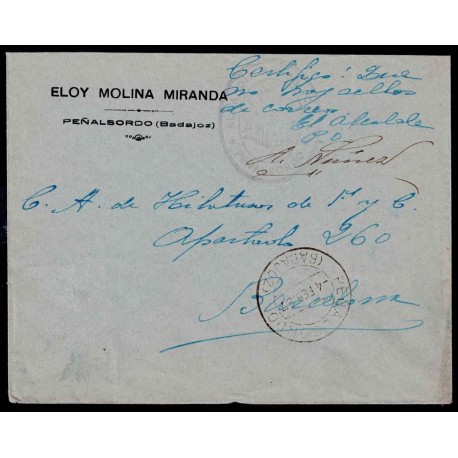 ELOY MOLINA MIRANDA
PEÑALSORDO (Badajoz)
Certifico: Que
no hay sellos
de correo
El Alcalde
P.O.
A. Núñez
C. A. de Hilaturas de F. y C.
Apartado 260
Barcelona
(BADAJOZ)
4 FEB